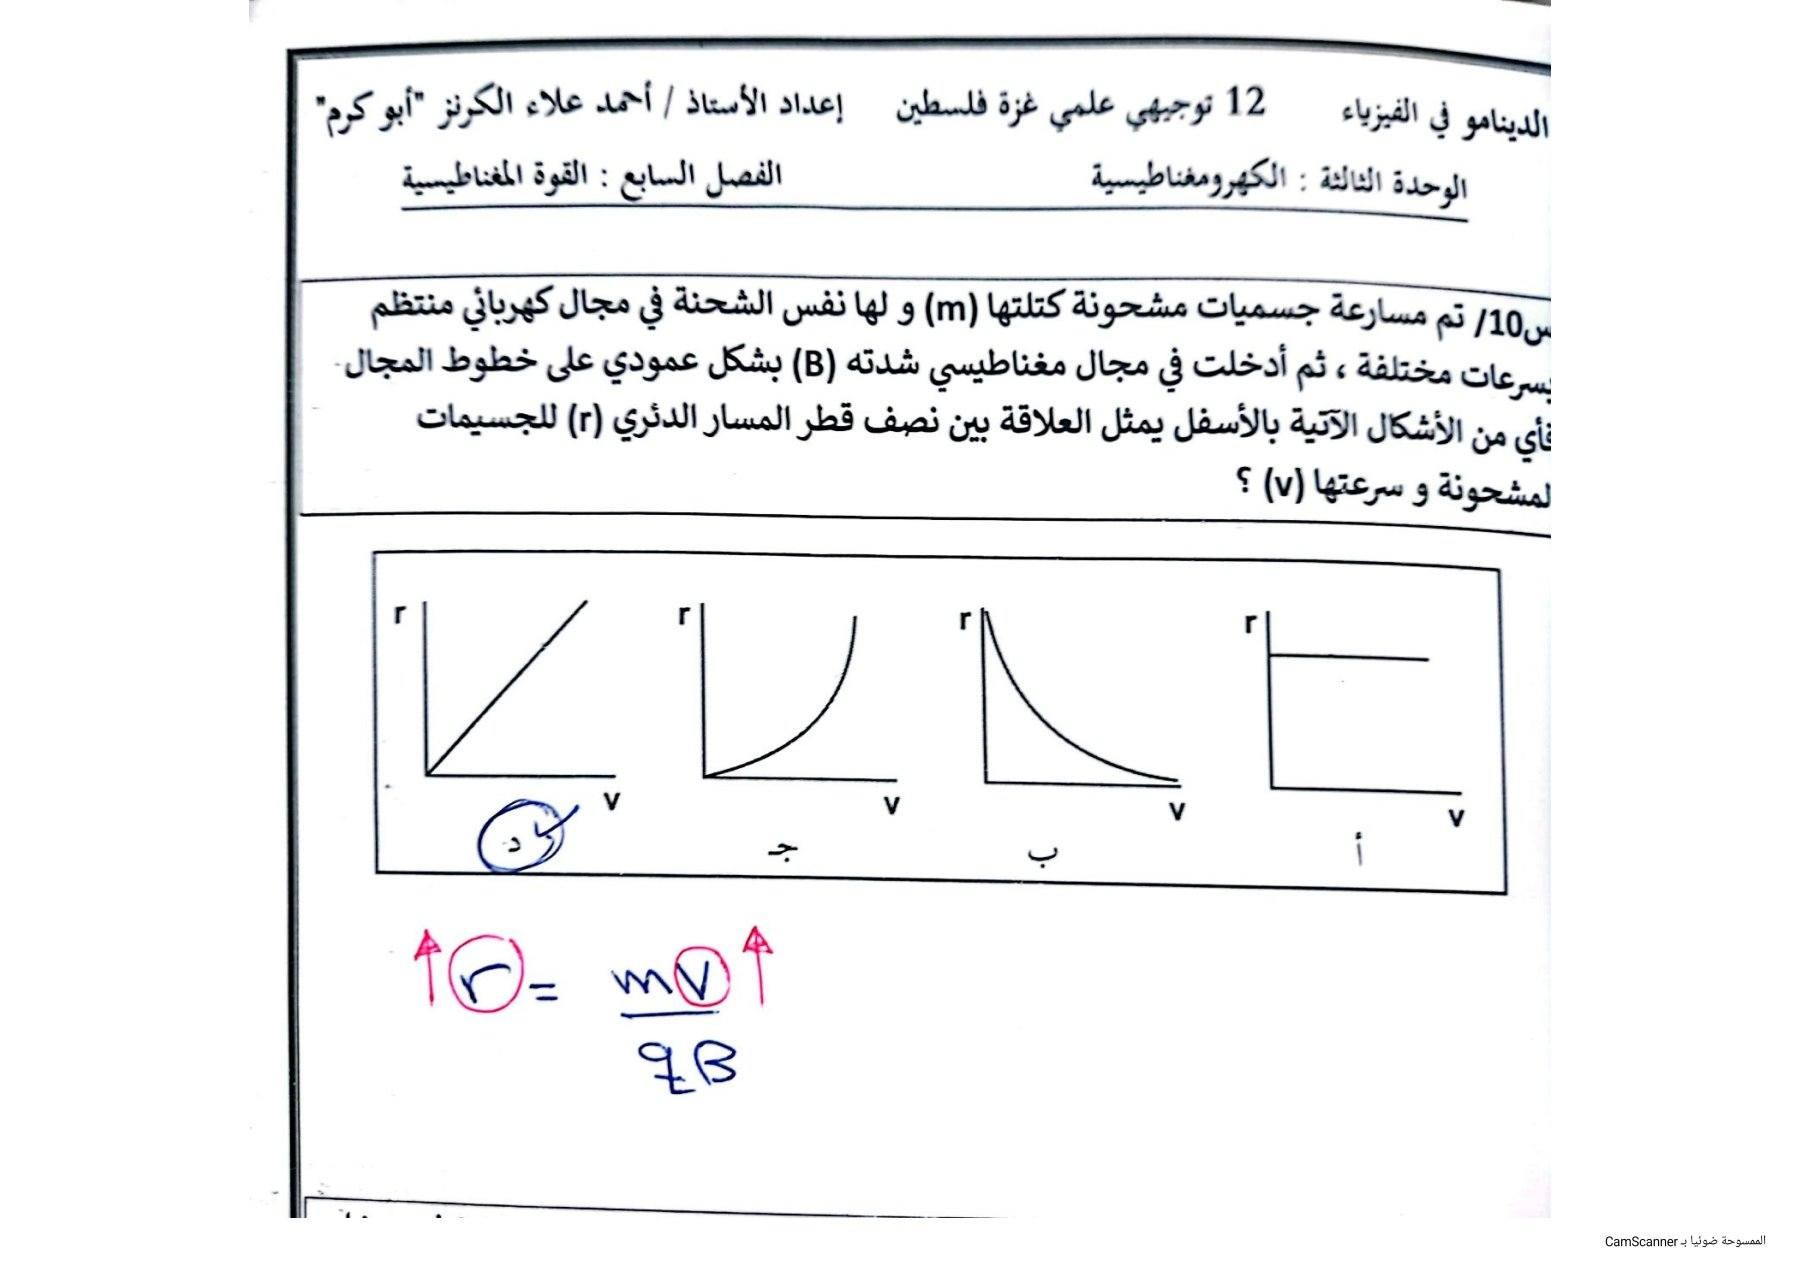 الدينامو في الفيزياء 12 توجيهي علمي غزة فلسطين إعداد الأستاذ / أحمد علاء الكرنز "أبو كرم"
الوحدة الثالثة : الكهرومغناطيسية الفصل السابع : القوة المغناطيسية
س10/ تم مسارعة جسميات مشحونة كتلتها (m) و لها نفس الشحنة في مجال كهربائي منتظم
بسرعات مختلفة ، ثم أدخلت في مجال مغناطيسي شدته (B) بشكل عمودي على خطوط المجال
فأي من الأشكال الآتية بالأسفل يمثل العلاقة بين نصف قطر المسار الدئري (r) للجسيمات
لمشحونة و سرعتها (v) ؟
r r r r
v v v v
أ ب جـ د
r = mv
qB
الممسوحة ضوئيا بـ CamScanner